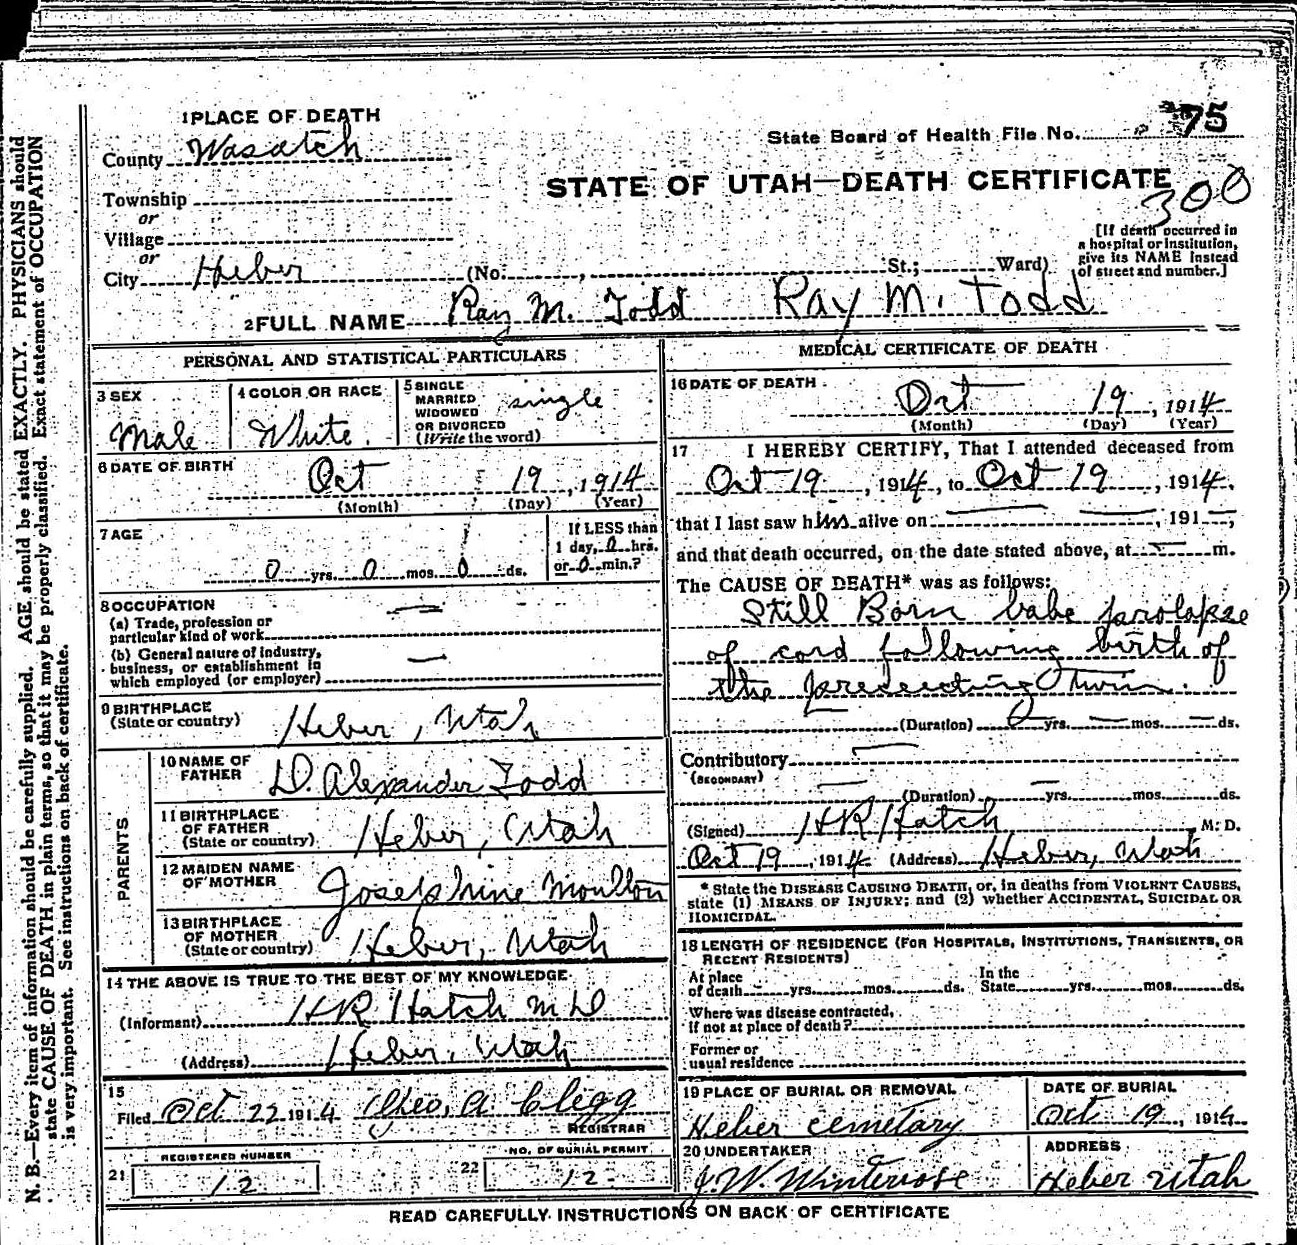 1 PLACE OF DEATH
State Board of Health File No. 75
County Wasatch
STATE OF UTAH—DEATH CERTIFICATE
300
Township
or
Village
or
City Heber (No. , St.; Ward)
[If death occurred in
a hospital or institution,
give its NAME instead
of street and number.]
2 FULL NAME Ray M. Todd Ray M. Todd
PERSONAL AND STATISTICAL PARTICULARS
3 SEX
Male
4 COLOR OR RACE
White.
5 SINGLE
MARRIED
WIDOWED
OR DIVORCED
(Write the word)
single
6 DATE OF BIRTH
Oct 19, 1914
(Month) (Day) (Year)
7 AGE
0 yrs. 0 mos. 0 ds.
If LESS than
1 day, 0 hrs.
or 0 min.?
8 OCCUPATION
(a) Trade, profession or
particular kind of work —
(b) General nature of industry,
business, or establishment in
which employed (or employer) —
9 BIRTHPLACE
(State or country) Heber, Utah
PARENTS
10 NAME OF
FATHER D. Alexander Todd
11 BIRTHPLACE
OF FATHER
(State or country) Heber, Utah
12 MAIDEN NAME
OF MOTHER Josephine Moulton
13 BIRTHPLACE
OF MOTHER
(State or country) Heber, Utah
14 THE ABOVE IS TRUE TO THE BEST OF MY KNOWLEDGE
(Informant) H R Hatch M D
(Address) Heber, Utah
15
Filed Oct 22 1914 Theo. A. Clegg
REGISTRAR
21 REGISTERED NUMBER
12
22 NO. OF BURIAL PERMIT
12
MEDICAL CERTIFICATE OF DEATH
16 DATE OF DEATH
Oct 19, 1914
(Month) (Day) (Year)
17 I HEREBY CERTIFY, That I attended deceased from
Oct 19, 1914, to Oct 19, 1914,
that I last saw him alive on — — , 191—,
and that death occurred, on the date stated above, at — m.
The CAUSE OF DEATH* was as follows:
Still Born babe prolapse
of cord following birth of
the preceeding twin.
(Duration) 0 yrs. — mos. — ds.
Contributory —
(SECONDARY)
— (Duration) — yrs. mos. ds.
(Signed) H R Hatch M. D.
Oct 19, 1914 (Address) Heber, Utah
* State the DISEASE CAUSING DEATH, or, in deaths from VIOLENT CAUSES,
state (1) MEANS OF INJURY; and (2) whether ACCIDENTAL, SUICIDAL OR
HOMICIDAL.
18 LENGTH OF RESIDENCE (FOR HOSPITALS, INSTITUTIONS, TRANSIENTS, OR
RECENT RESIDENTS)
At place
of death yrs. mos. ds.
In the
State yrs. mos. ds.
Where was disease contracted,
if not at place of death?
Former or
usual residence
19 PLACE OF BURIAL OR REMOVAL
Heber cemetary
DATE OF BURIAL
Oct 19, 1914
20 UNDERTAKER
J. W. Winterose
ADDRESS
Heber Utah
READ CAREFULLY INSTRUCTIONS ON BACK OF CERTIFICATE
N. B.—Every item of information should be carefully supplied. AGE should be stated EXACTLY. PHYSICIANS should
state CAUSE OF DEATH in plain terms, so that it may be properly classified. Exact statement of OCCUPATION
is very important. See instructions on back of certificate.